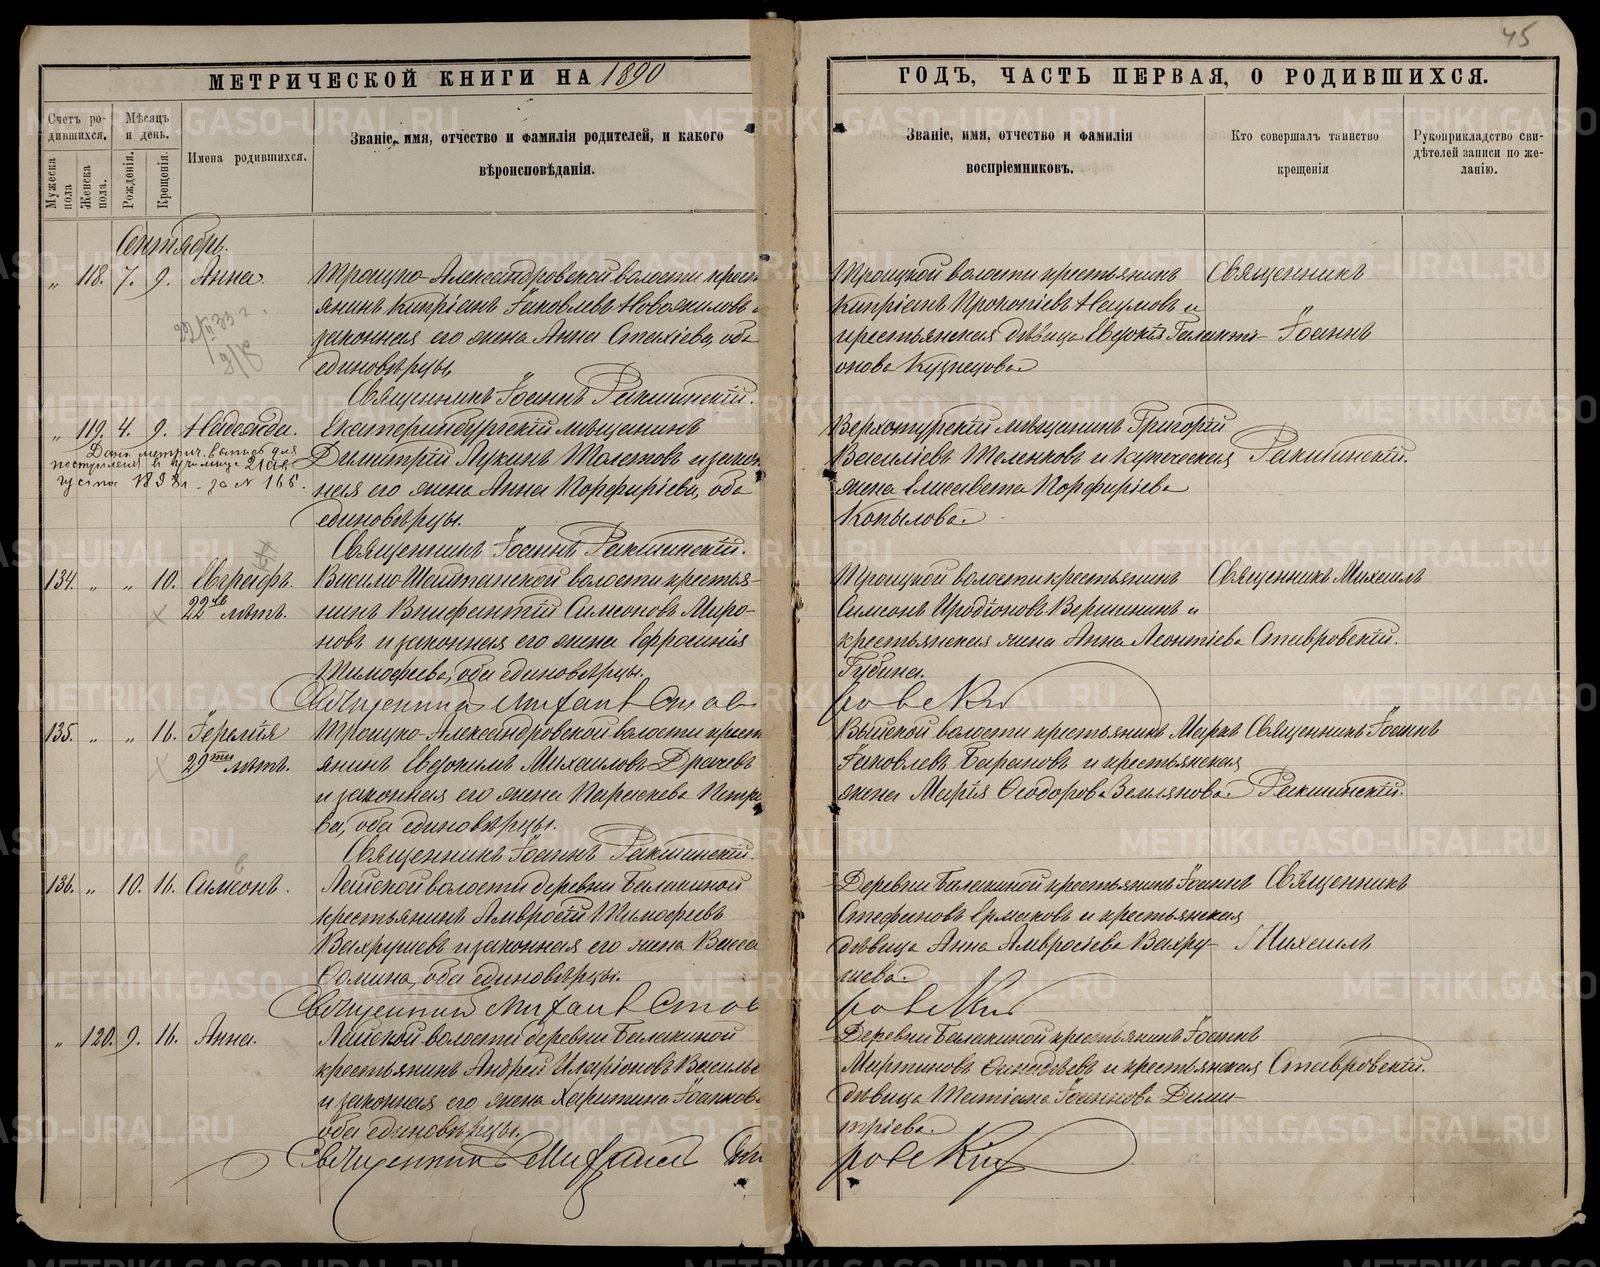 45
МЕТРИЧЕСКОЙ КНИГИ НА 1890
ГОДЪ, ЧАСТЬ ПЕРВАЯ, О РОДИВШИХСЯ.
Счетъ ро-
дившихся.
Мужеска
пола
Женска
пола.
Мѣсяцъ
и день.
Рожденія.
Крещенія.
Имена родившихся.
Званіе, имя, отчество и фамилія родителей, и какого
вѣроисповѣданія.
Званіе, имя, отчество и фамилія
воспріемниковъ.
Кто совершалъ таинство
крещенія
Рукоприкладство сви-
дѣтелей записи по же-
ланію.
Сентябрь.
„ 118. 7. 9. Анна.
Троицко-Александровской волости крест
янинъ Кипріанъ Іаковлевъ Новожиловъ и
законная его жена Анна Стахіева, оба
единовѣрцы.
Священникъ Іоаннъ Ракшинскій.
Троицкой волости крестьянинъ
Кипріанъ Прокопіевъ Наумовъ и
крестьянская дѣвица Евдокія Галакті-
онова Кузнецова.
Священникъ
Іоаннъ
Ракшинскій.
„ 119. 4. 9. Надежда.
Дана метрич. выпись для
поступленія в училище 21 ав-
густа 1898 г. за № 165.
Екатеринбургскій мѣщанинъ
Димитрій Лукинъ и закон
ная его жена Анна Порфиріева, оба
единовѣрцы.
Священникъ Іоаннъ Ракшинскій.
Верхотурскій мѣщанинъ Григорій
Василіевъ Теленковъ и купеческая
жена Елисавета Порфиріева
Копылова.
134. „ „ 10. Евграфъ.
22 лѣтъ.
Висимо-Шайтанской волости крестья-
нинъ Внифантій Симеоновъ Миро-
новъ и законная его жена Ефросинія
Тимофеева, оба единовѣрцы.
Священникъ Михаилъ Став
ровскій
Троицкой волости крестьянинъ
Симеонъ Иродіоновъ Вершининъ и
крестьянская жена Анна Леонтіева
Губина.
Священникъ Михаилъ
Ставровскій.
135. „ „ 16.
29ти лѣтъ.
Троицко-Александровской волости крест
янинъ Евдокимъ Михаиловъ Драчевъ
и законная его жена Параскева Петро
ва, оба единовѣрцы.
Священникъ Іоаннъ Ракшинскій.
Выйской волости крестьянинъ Маркъ
Іаковлевъ Барановъ и крестьянская
жена Марія Ѳеодорова Землянова.
Священникъ Іоаннъ
Ракшинскій.
136. „ 10. 16. Симеонъ.
Лайской волости деревни Балакиной
крестьянинъ Амвросій Тимофеевъ
Вахрушевъ и законная его жена Васса
Сомина, оба единовѣрцы.
Священникъ Михаилъ Став
ровскій
Деревни Балакиной крестьянинъ Іоаннъ
Стефановъ Ермаковъ и крестьянская
дѣвица Анна Амвросіева Вахру-
шева.
Священникъ
Михаилъ
Ставровскій.
„ 120. 9. 16. Анна.
Лайской волости деревни Балакиной
крестьянинъ Андрей Иларіоновъ Василье
и законная его жена Харитина Іоаннова
оба единовѣрцы.
Священникъ Михаилъ Став
ровскій
Деревни Балакиной крестьянинъ Іоаннъ
Мартиновъ и крестьянская
дѣвица Татіана Іоаннова Дими-
тріева.
METRIKI.GASO-URAL.RU